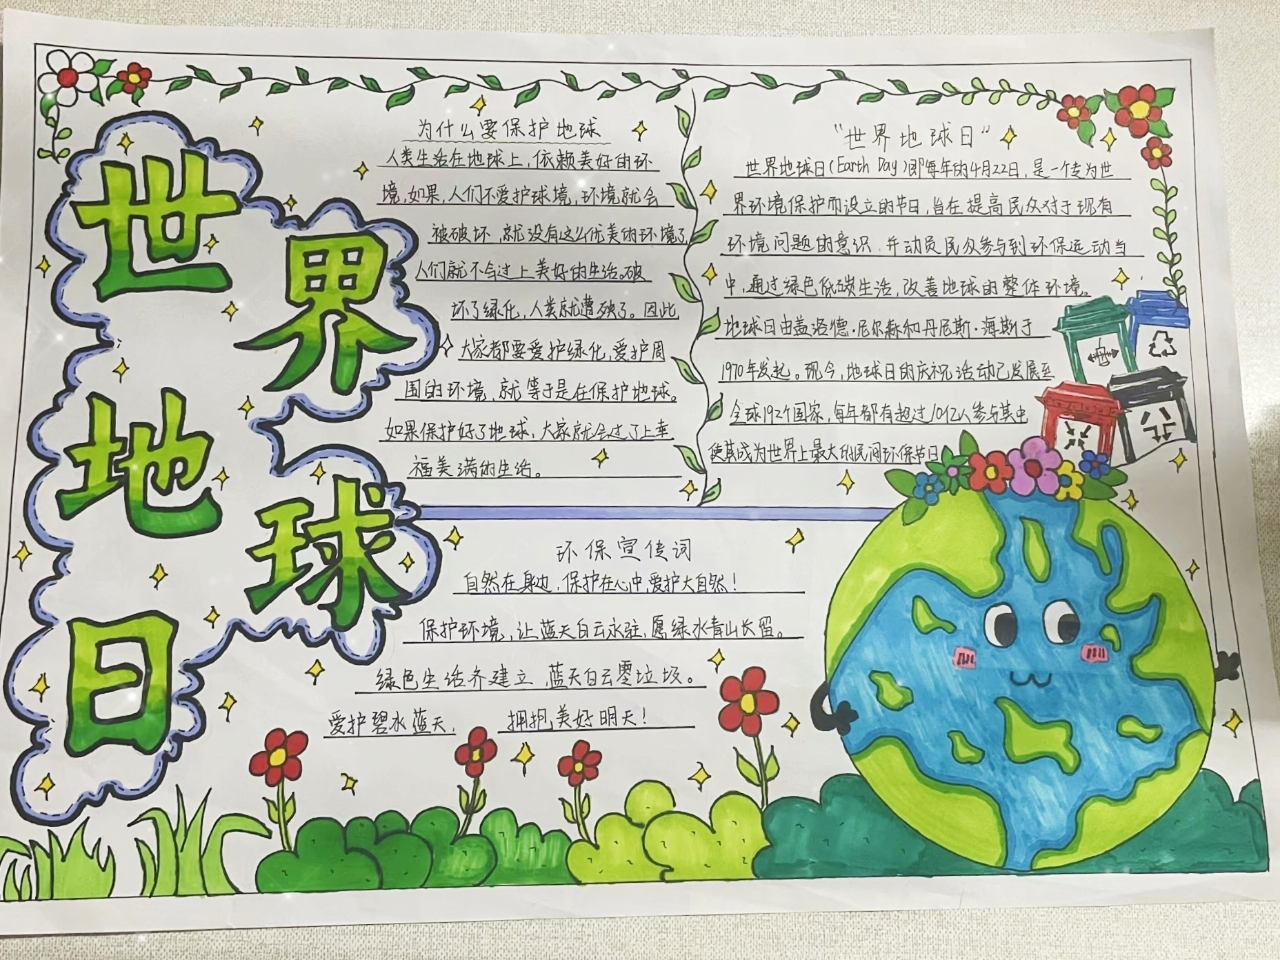 世界地球日
为什么要保护地球
人类生活在地球上,依赖美好的环
境,如果,人们不爱护球境,环境就会
被破坏,就没有这么优美的环境了,
人们就不会过上美好的生活。破
坏了绿化,人类就遭殃了。因此
大家都要爱护绿化,爱护周
围的环境,就等于是在保护地球。
如果保护好了地球,大家就会过了上幸
福美满的生活。
"世界地球日"
世界地球日(Earth Day)即每年的4月22日,是一个专为世
界环境保护而设立的节日,旨在提高民众对于现有
环境问题的意识,并动员民众参与到环保运动当
中,通过绿色低碳生活,改善地球的整体环境。
地球日由盖洛德·尼尔森和丹尼斯·海斯于
1970年发起。现今,地球日的庆祝活动已发展至
全球192个国家,每年都有超过10亿人参与其中
使其成为世界上最大的民间环保节日
环保宣传词
自然在身边,保护在心中,爱护大自然!
保护环境,让蓝天白云永驻,愿绿水青山长留。
绿色生活齐建立,蓝天白云零垃圾。
爱护碧水蓝天, 拥抱美好明天!